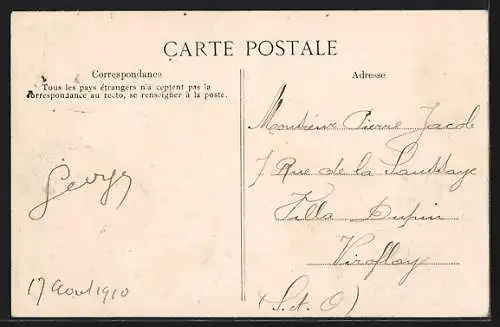 CARTE POSTALE
Correspondance
Tous les pays étrangers n'a ceptent pas la
correspondance au recto, se renseigner à la poste.
Adresse
Monsieur Pierre Jacob
7 Rue de la Saussaye
Villa Dupin
Viroflay
(S. et O)
Georges
17 Aout 1910